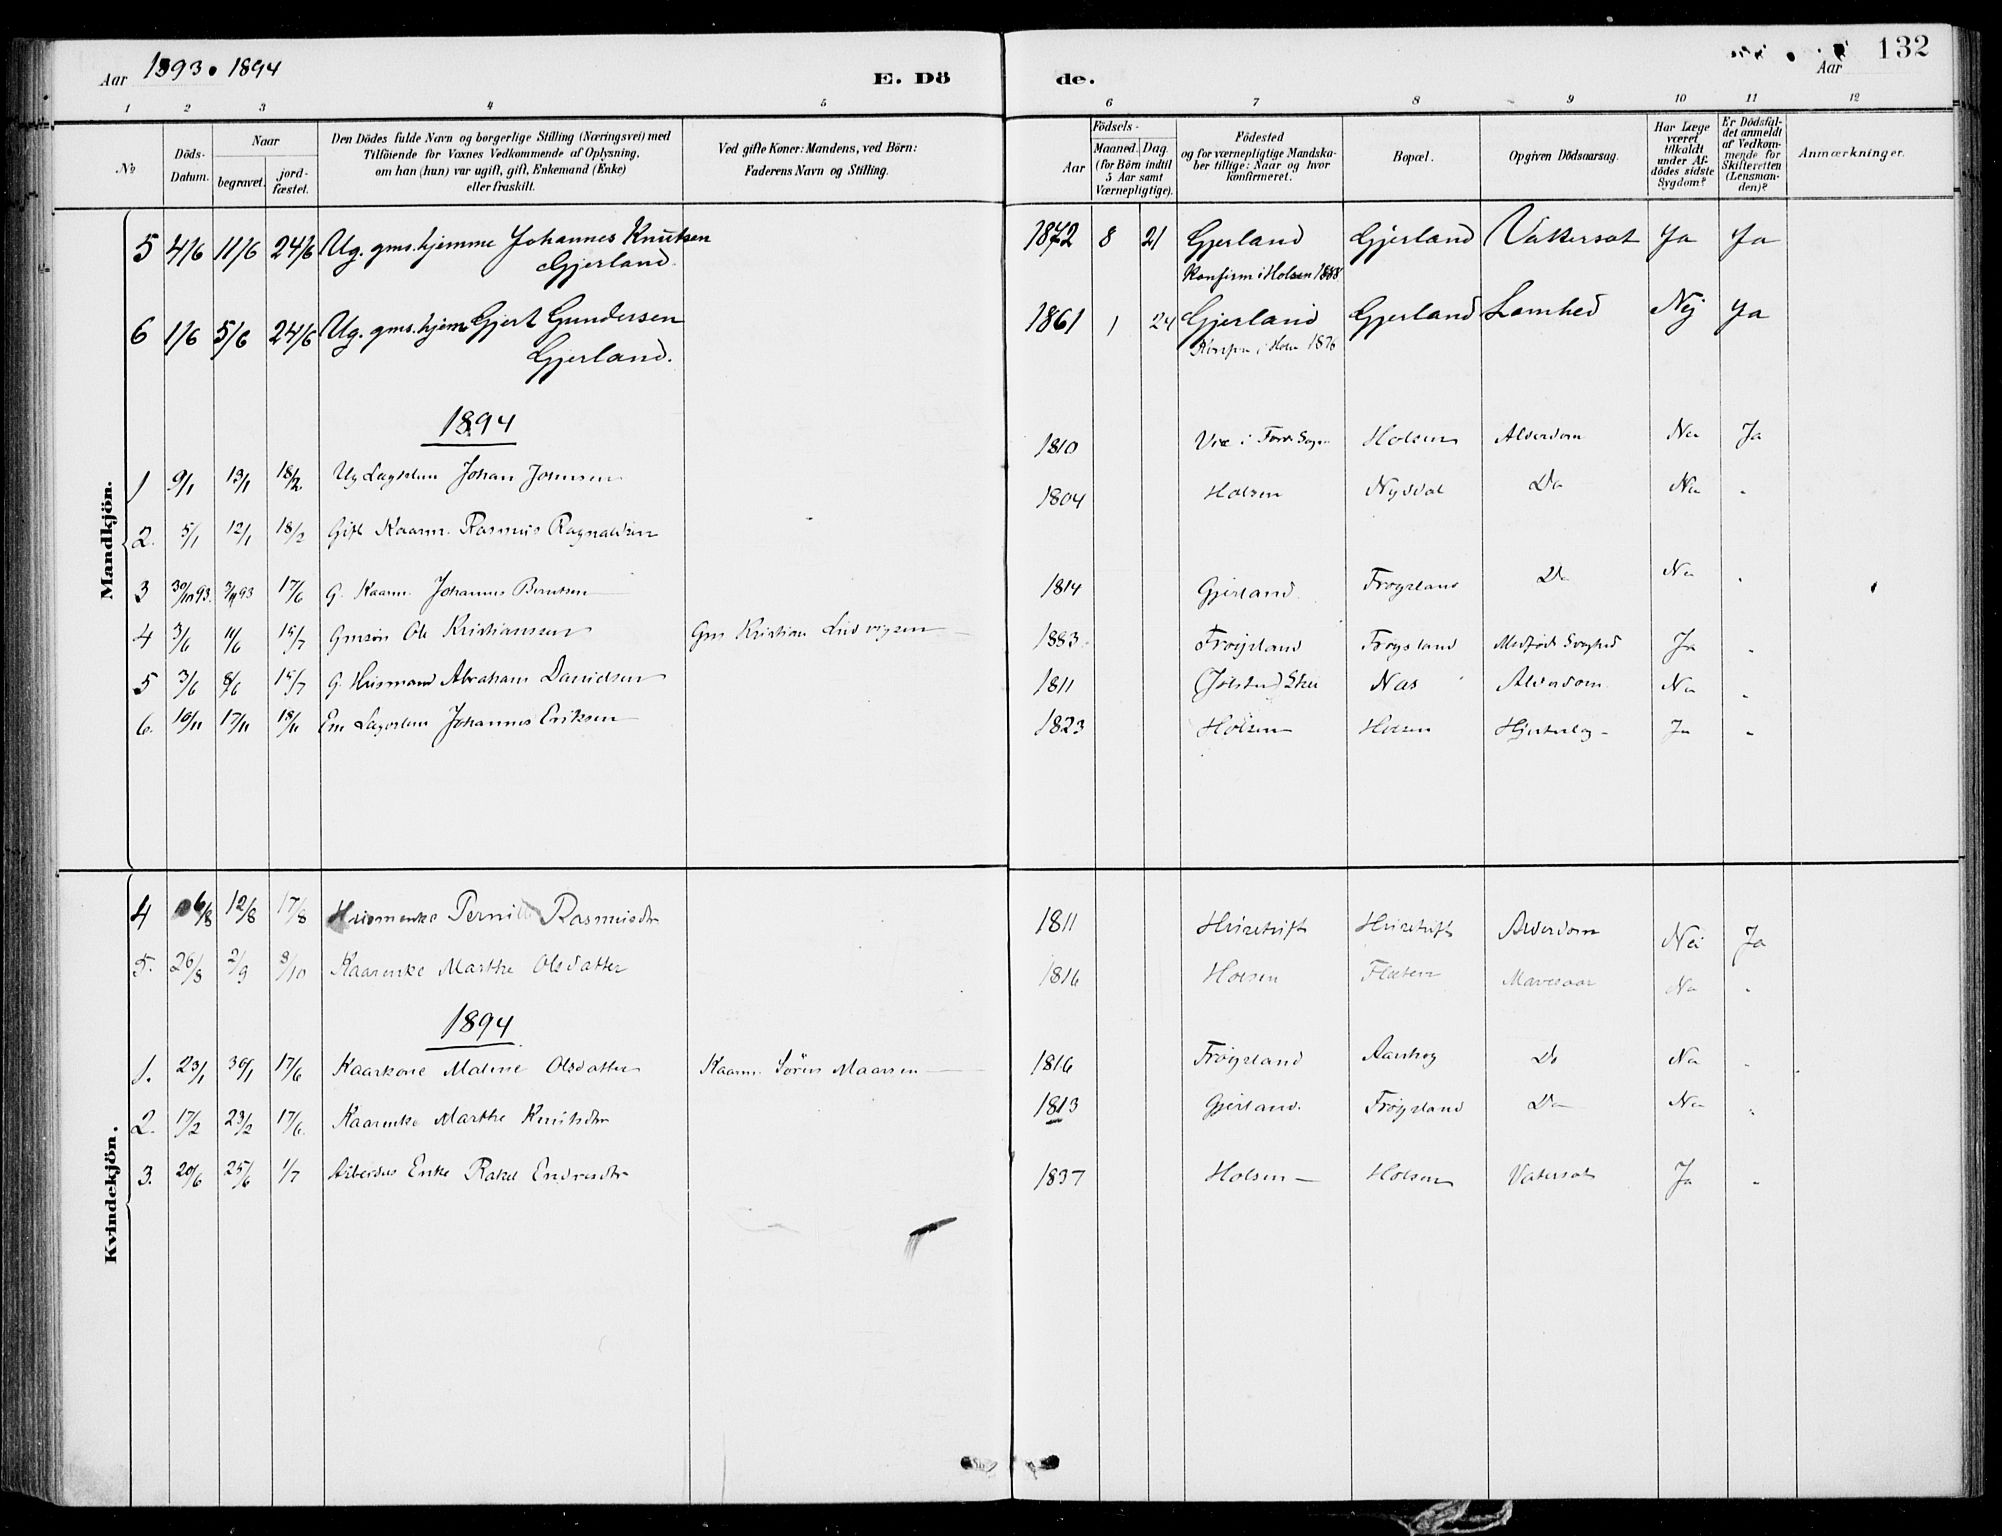 Aar 1893. 1894
E. Dö
de.
Aar
132
1 2 3 4 5 6 7 8 9 10 11 12
No
Döds-Datum.
Naar
begravet.
jord-fæstet.
Den Dödes fulde Navn og borgerlige Stilling (Næringsvei) med
Tilföiende for Voxnes Vedkommende af Oplysning,
om han (hun) var ugift, gift, Enkemand (Enke)
eller fraskilt.
Ved gifte Koner: Mandens, ved Börn:
Faderens Navn og Stilling.
Födsels-
Aar
Maaned. Dag.
(for Börn indtil
5 Aar samt
Værnepligtige).
Födested
og for værnepligtige Mandska-
ber tillige: Naar og hvor
konfirmeret.
Bopæl.
Opgiven Dödsaarsag.
Har Læge
været
tilkaldt
under Af-
dödes sidste
Sygdom?
Er Dödsfal-
det anmeldt
af Vedkom-
mende for
Skifteretten
(Lensman-
den)?
Anmærkninger.
Mandkjön.
5 4/6 11/6 24/6 Ug. gms. hjemme Johannes Knutsen 1872 8 21 Gjerland Gjerland Vattersot Ja Ja
Gjerland. Konfirm i Holsen 1888
6 1/6 5/6 24/6 Ug. gms. hjem Gjert Gundersen 1861 1 24 Gjerland Gjerland Lamhed Nej Ja
Gjerland. i Holsen 1876
1894
1 9/1 13/1 18/2 Ug Lægdslem Johan Johnsen 1810 Vie i Førde Sogn Holsen Alderdom Nei Ja
2. 5/1 12/1 18/2 Gift Kaarm. Rasmus Ragnaldsen 1804 Holsen Nydal Do Nei "
3 30/10 93. 3/11 93 17/6 G. Kaarm. Johannes Berntsen 1814 Gjerland Frøysland Do Nei "
4 3/6 11/6 15/7 Gmsøn Ole Kristianssen Gm Kristian Ludvigsen 1883 Frøysland Frøysland Medfødt Svaghed Ja "
5 3/6 8/6 15/7 G. Husmand Abraham Danielsen 1811 (Jølster) Skei Nas Alderdom Nei "
6. 10/11 17/11 18/11 Em Lægdslem Johannes Eriksen 1823 Holsen Holsen Hjerteslag Ja "
Kvindekjön.
4 6/8 12/8 17/8 Husmenke Pernille Rasmusdtr 1811 Huiretuft Huiretuft Alderdom Nei Ja
5. 26/8 2/9 8/10 Kaarenke Marthe Olsdatter 1816 Holsen Flaten Mavesaar Nei "
1894
1. 23/1 30/1 17/6 Kaarkone Maline Olsdatter Kaarm. Sören Maarsen 1816 Frøysland Aarskog Do Nei "
2. 17/2 23/2 17/6 Kaarenke Marthe Knutsdtr 1813 Gjerland. Frøysland Do Nei "
3. 20/6 25/6 1/7 Arbeids Enke Rakel Endresdtr 1837 Holsen Holsen Vatersot Ja "